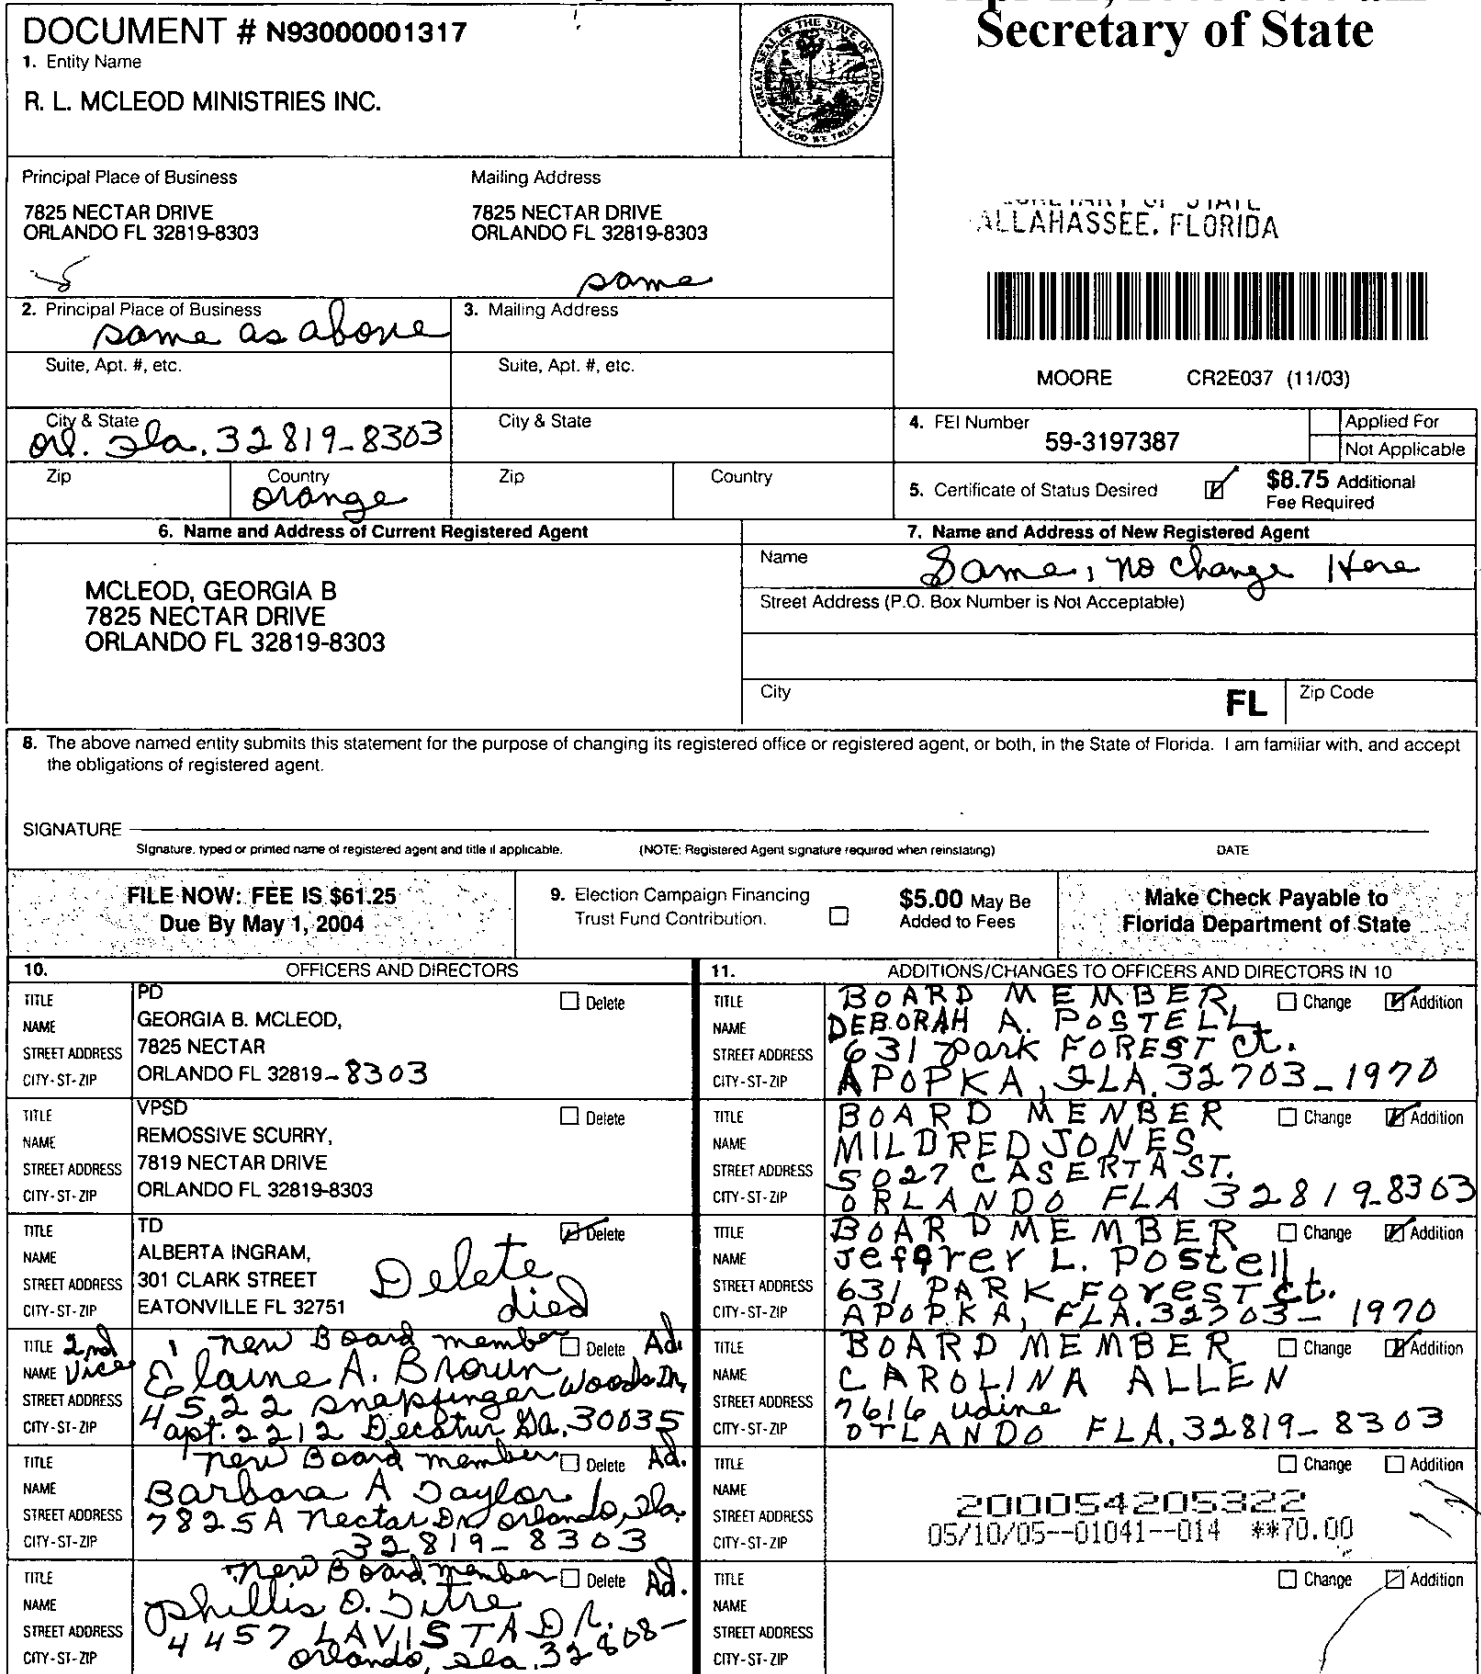 Secretary of State
DOCUMENT # N93000001317
1. Entity Name
R. L. MCLEOD MINISTRIES INC.
GREAT SEAL OF THE STATE OF FLORIDA
IN GOD WE TRUST
Principal Place of Business
7825 NECTAR DRIVE
ORLANDO FL 32819-8303
Mailing Address
7825 NECTAR DRIVE
ORLANDO FL 32819-8303
same
ALLAHASSEE, FLORIDA
MOORE CR2E037 (11/03)
2. Principal Place of Business
same as above
3. Mailing Address
Suite, Apt. #, etc.
Suite, Apt. #, etc.
City & State
Orl. Fla. 32819-8303
City & State
Zip
Country
Orange
Zip
Country
4. FEI Number
59-3197387
Applied For
Not Applicable
5. Certificate of Status Desired
$8.75 Additional
Fee Required
6. Name and Address of Current Registered Agent
MCLEOD, GEORGIA B
7825 NECTAR DRIVE
ORLANDO FL 32819-8303
7. Name and Address of New Registered Agent
Name
Same, no change Here
Street Address (P.O. Box Number is Not Acceptable)
City
FL
Zip Code
8. The above named entity submits this statement for the purpose of changing its registered office or registered agent, or both, in the State of Florida. I am familiar with, and accept
the obligations of registered agent.
SIGNATURE
Signature, typed or printed name of registered agent and title if applicable.
(NOTE: Registered Agent signature required when reinstating)
DATE
FILE NOW: FEE IS $61.25
Due By May 1, 2004
9. Election Campaign Financing
Trust Fund Contribution.
$5.00 May Be
Added to Fees
Make Check Payable to
Florida Department of State
10. OFFICERS AND DIRECTORS
TITLE PD Delete
NAME GEORGIA B. MCLEOD,
STREET ADDRESS 7825 NECTAR
CITY-ST-ZIP ORLANDO FL 32819-8303
TITLE VPSD Delete
NAME REMOSSIVE SCURRY,
STREET ADDRESS 7819 NECTAR DRIVE
CITY-ST-ZIP ORLANDO FL 32819-8303
TITLE TD Delete
NAME ALBERTA INGRAM,
STREET ADDRESS 301 CLARK STREET
CITY-ST-ZIP EATONVILLE FL 32751
Delete
died
TITLE 2nd new Board member Delete Ad.
NAME Vice Elaine A. Brown
STREET ADDRESS 4522 Snapfinger Woods Dr,
CITY-ST-ZIP apt. 2212 Decatur Ga. 30035
TITLE new Board member Delete Ad.
NAME Barbara A Taylor
STREET ADDRESS 7825A Nectar Dr Orlando, Fla.
CITY-ST-ZIP 32819-8303
TITLE new Board member Delete Ad.
NAME Phillis D.
STREET ADDRESS 4457 LAVISTA DR.
CITY-ST-ZIP Orlando, Fla. 32808-
11. ADDITIONS/CHANGES TO OFFICERS AND DIRECTORS IN 10
TITLE BOARD MEMBER, Change Addition
NAME DEBORAH A. POSTELL,
STREET ADDRESS 631 Park FOREST Ct.
CITY-ST-ZIP APOPKA, FLA. 32703-1970
TITLE BOARD MENBER Change Addition
NAME MILDRED JONES
STREET ADDRESS 5027 CASERTA ST.
CITY-ST-ZIP ORLANDO FLA 32819-8303
TITLE BOARD MEMBER Change Addition
NAME Jeffrer L. Postell
STREET ADDRESS 631 PARK Forest Ct.
CITY-ST-ZIP APOPKA, FLA. 32703-1970
TITLE BOARD MEMBER Change Addition
NAME CAROLINA ALLEN
STREET ADDRESS 7616 udine
CITY-ST-ZIP OrLANDO FLA. 32819-8303
TITLE Change Addition
NAME
STREET ADDRESS
CITY-ST-ZIP
2000054205322
05/10/05--01041--014 **70.00
TITLE Change Addition
NAME
STREET ADDRESS
CITY-ST-ZIP